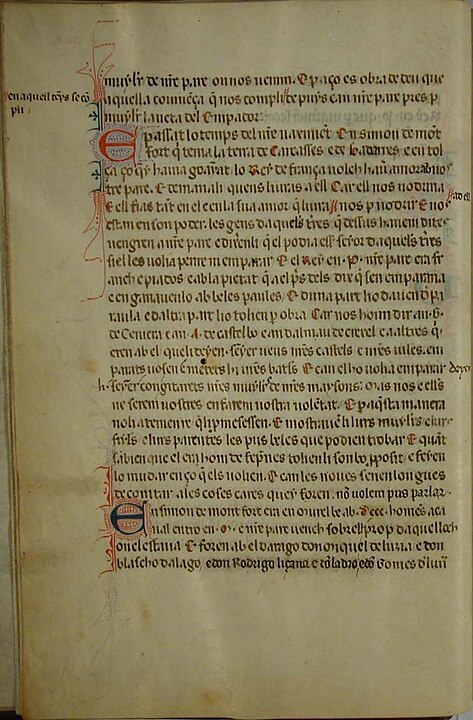 muyler de nr̃e pare on nos uenim. E p aço es obra de deu que
aquella couinença q̃ nos compli de puys can nr̃e pare pres p
muyler la neta del Emperador.
en aquell temps se cõpli
E passat lo temps del nr̃e naximet En simon de mõt
fort q̃ tenia la terra de Carcasses e de badarres e en tol
ça ço q̃y hauia goayat lo Rey de frança uolch hauer amor ab nos
tre pare. E demanali quens liuras a ell Car ell nos nodriria
E ell fias tat en ell e en la sua amor q̃ liura nos p nodrir E nos
estan en son poder. les gens daquels t̃res q̃ dessus hauem dites
uengren a nr̃e pare e dixenli q̃ el podia esser señor daquels t̃res
si el les uolha penre ni emparar. E el Rey en .P. nr̃e pare era fr
anch e piados e ab la pietat q̃ ac el p̃s dels dix q̃ sen empararia
e enganauenlo ab beles paules. E duna part ho dauen dpa
raula e daltra part lo tolien p obra. Car nos hoim dir an .G.
de Ceruera e an .A. de castelbo e an dalmau de crexel e a altres q̃
eren ab el quel deyen. señer ueus nr̃es castels e nr̃es uiles. em
parats uos en e metets hi nr̃es batles. E can el ho uolia emparar
deyen señer congitarets nr̃es muylers de nr̃es maysons. Mas nos e elles
ne serem uostres e en farem uostra uolẽtat. E p aq̃sta manera
no li atenien re q̃ li p mesessen. E mostrauen li lurs muylers e lurs
fiyles e lurs parentes les pus beles que podien trobar E quãt
sabien que el era hom de fepnes tolienli son bo pposit e feyen
lo mudar en ço q̃ els uolien. E can les noues serien longues
de comtar. a les coses cares que y foren. nõ uolem pus parlar.
En simon de mont fort era en murel be ab .Dccc. homẽs a ca
ual entro en .M. e nr̃e pare uench sobre el p prop daquel loch
on el estaua E foren ab el darago don Miquel de luzia e don
blascho dalago, e don Rodrigo liçana e don ladro, e dõ Gomes d luna